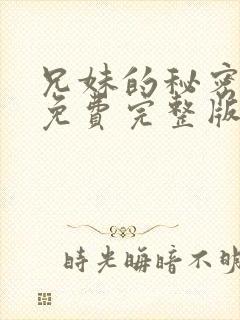 兄妹的秘密
免費完整版
時光晦暗不明